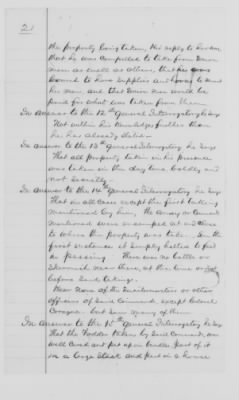 2
the property being taken, the reply to him was
that he was compelled to take from Union
men as well as others, that he was
bound to have supplies and to
his men and that Union men would be
paid for what was taken from them
In Answer to the 12th General Interrogatory he says
Not within his knowledge further than
he has already stated.
In Answer to the 13th General Interrogatory he says
That all property taken in his presence
was taken in the day time boldly and
not secretly.
In Answer to the 14th General Interrogatory he says
That in all cases except the first taking
mentioned by him, the Army or Command
mentioned were encamped at and there
to where the property was taken. In the
first instance it simply halted to feed
in passing There was no battle or
Skirmish near there, at the time or just
before said takings.
Knew none of the Quartermasters or other
officers of said Command, except Colonel
but saw many of them
In Answer to the 15th General Interrogatory he says
That the Fodder taken by said Command, was
well cured and put up in part of it
in a large Stack and part in a house